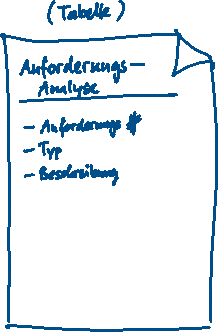 (Tabelle)
Anforderungs-
Analyse
- Anforderungs #
- Typ
- Beschreibung